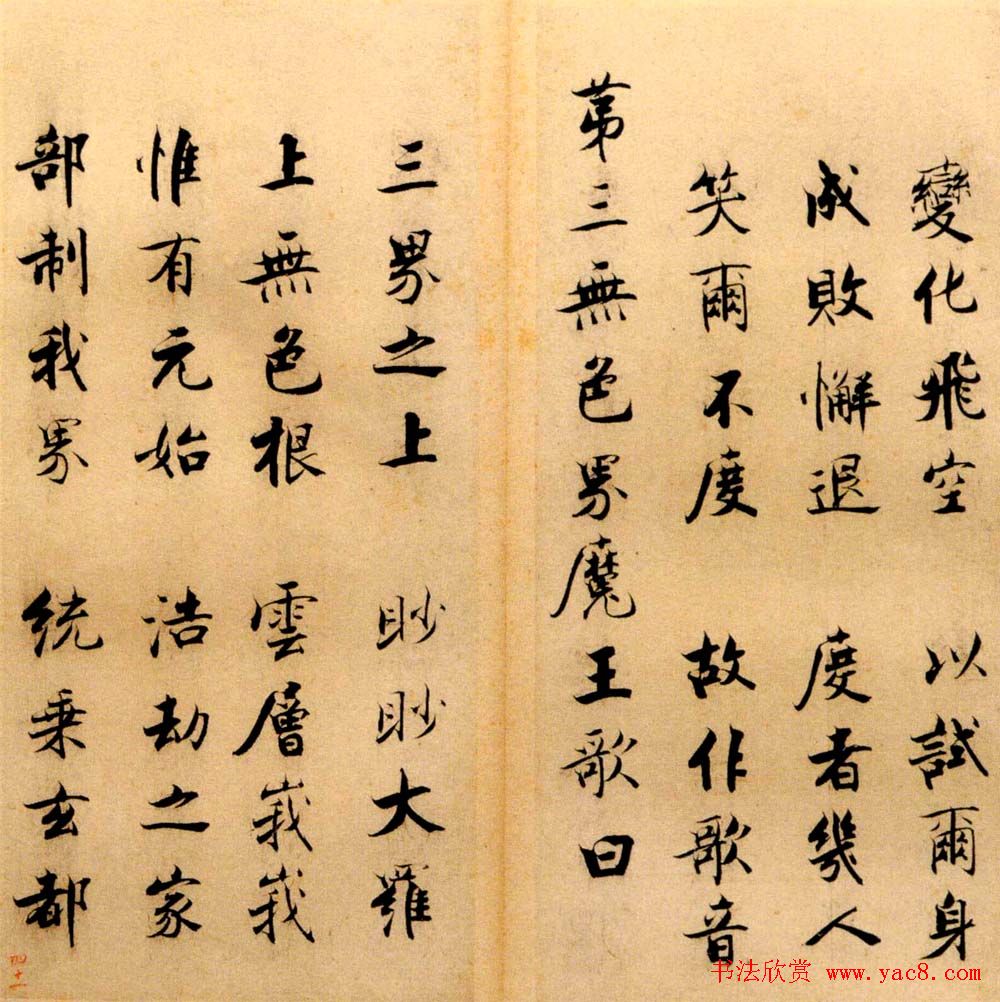 變化飛空 以試爾身
成敗懈退 度者幾人
笑爾不度 故作歌音
苐三無色界魔王歌曰
三界之上 眇眇大羅
上無色根 雲層峩峩
惟有元始 浩劫之家
部制我界 統乗玄都
四十二
书法欣赏 www.yac8.com